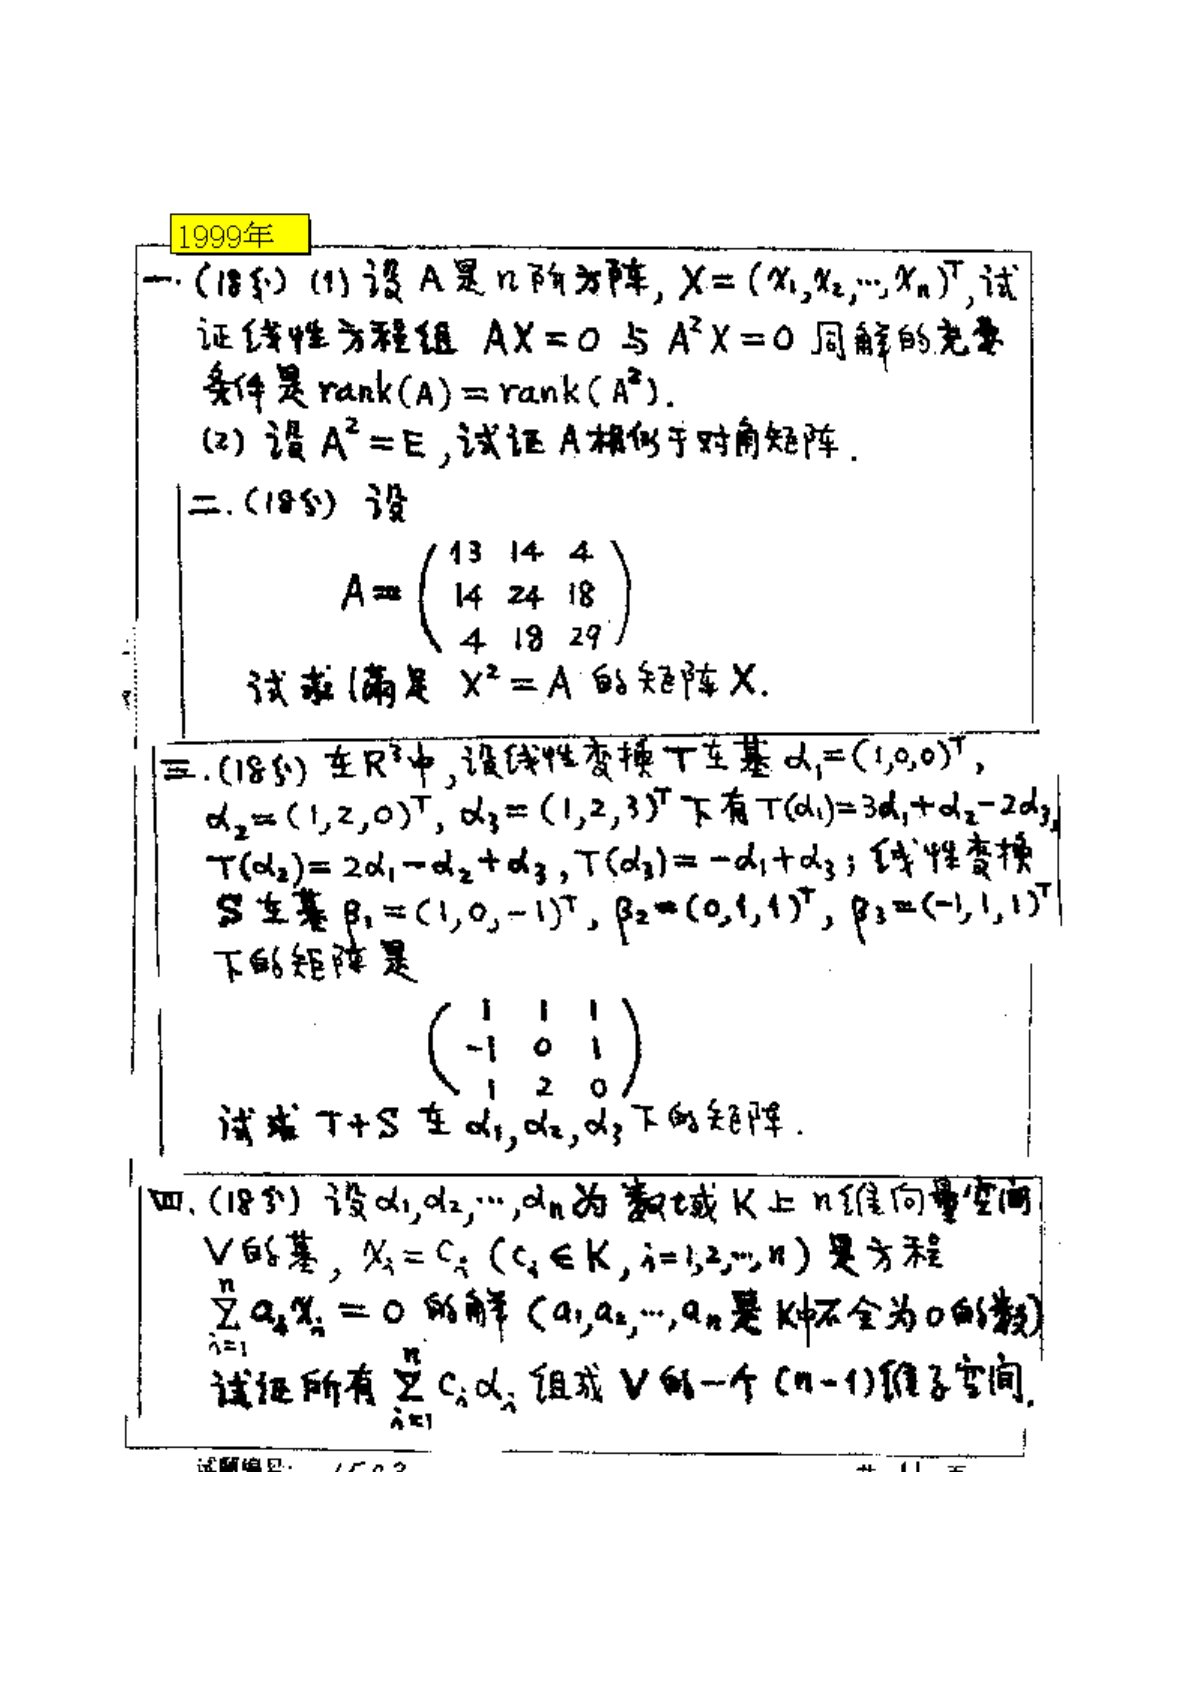 1999年
一.(18分) (1) 设 A 是 n 阶方阵, X = (x₁, x₂, …, xₙ)ᵀ, 试
证线性方程组 AX = 0 与 A²X = 0 同解的充要
条件是 rank(A) = rank(A²).
(2) 设 A² = E, 试证 A 相似于对角矩阵.
二.(18分) 设
A = ( 13 14 4
14 24 18
4 18 29 )
试求满足 X² = A 的矩阵 X.
三.(18分) 在 R³ 中, 设线性变换 T 在基 α₁ = (1,0,0)ᵀ,
α₂ = (1,2,0)ᵀ, α₃ = (1,2,3)ᵀ 下有 T(α₁) = 3α₁ + α₂ - 2α₃,
T(α₂) = 2α₁ - α₂ + α₃, T(α₃) = -α₁ + α₃; 线性变换
S 在基 β₁ = (1,0,-1)ᵀ, β₂ = (0,1,1)ᵀ, β₃ = (-1,1,1)ᵀ
下的矩阵是
( 1 1 1
-1 0 1
1 2 0 )
试求 T+S 在 α₁, α₂, α₃ 下的矩阵.
四.(18分) 设 α₁, α₂, …, αₙ 为数域 K 上 n 维向量空间
V 的基, xᵢ = cᵢ (cᵢ ∈ K, i = 1,2,…,n) 是方程
∑ⁿᵢ₌₁ aᵢxᵢ = 0 的解 (a₁, a₂, …, aₙ 是 K 中不全为 0 的数)
试证所有 ∑ⁿᵢ₌₁ cᵢαᵢ 组成 V 的一个 (n-1) 维子空间.
试题编号: